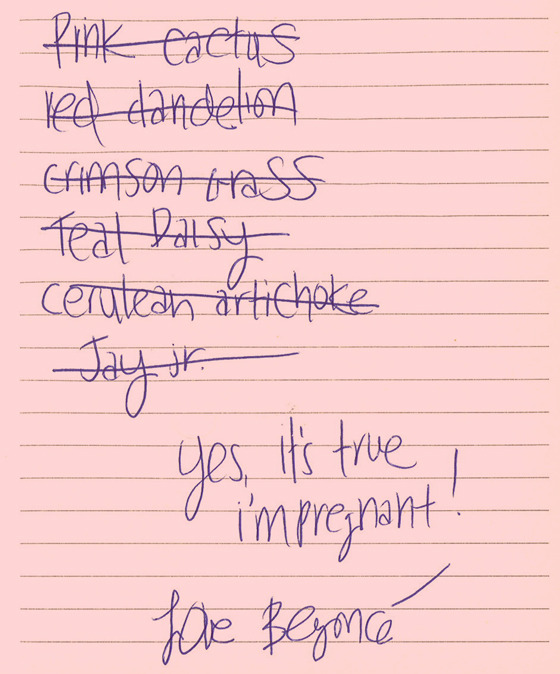 Pink cactus
red dandelion
crimson grass
Teal Daisy
cerulean artichoke
Jay jr.
yes, it's true
i'm pregnant!
love Beyoncé